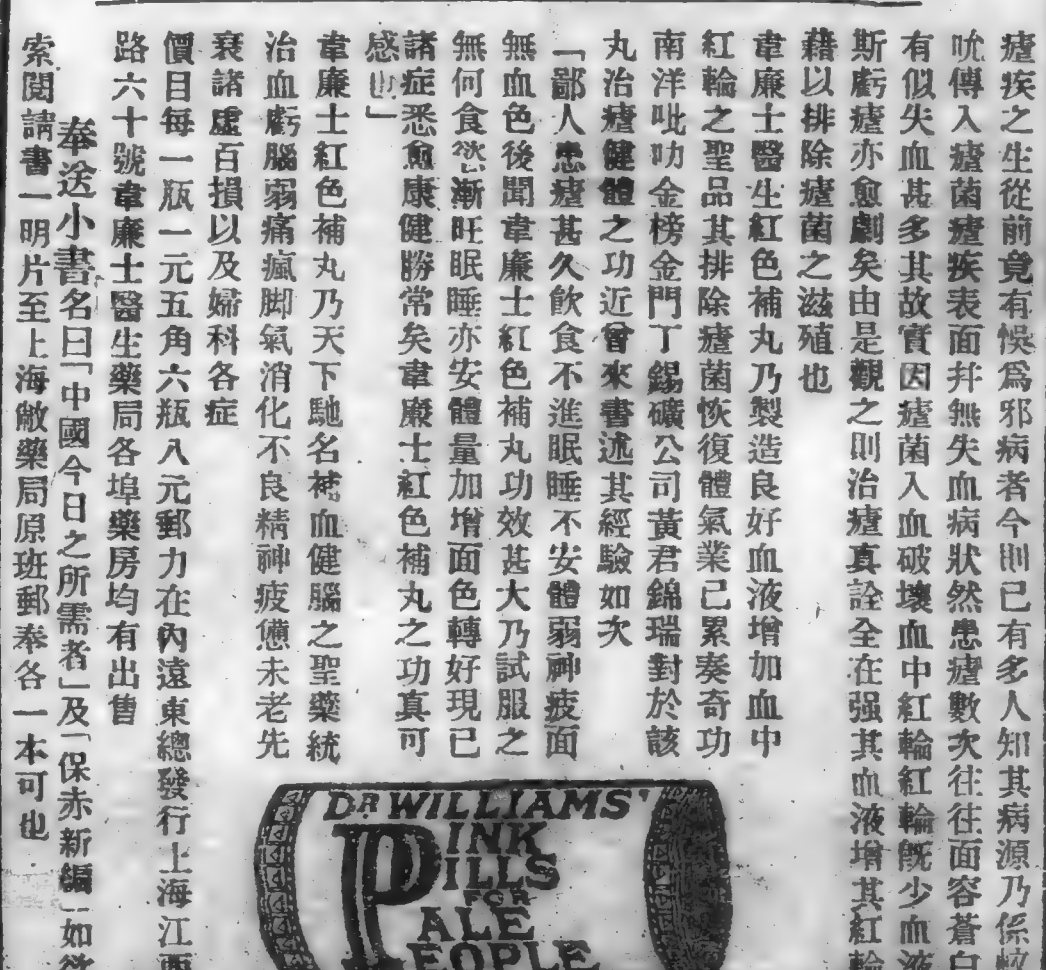 瘧疾之生從前竟有悞爲邪病者今則已有多人知其病源乃係
吮傳入瘧菌瘧疾表面幷無失血病狀然患瘧數次往往面容蒼白
有似失血甚多其故實因瘧菌入血破壞血中紅輪紅輪旣少血液
斯虧瘧亦愈劇矣由是觀之則治瘧眞詮全在强其血液增其紅輪
藉以排除瘧菌之滋殖也
韋廉士醫生紅色補丸乃製造良好血液增加血中
紅輪之聖品其排除瘧菌恢復體氣業已累奏奇功
南洋吡叻金榜金門丁錫礦公司黃君錦瑞對於該
丸治瘧健體之功近曾來書述其經驗如次
「鄙人患瘧甚久飮食不進眠睡不安體弱神疲面
無血色後聞韋廉士紅色補丸功效甚大乃試服之
無何食慾漸旺眠睡亦安體量加增面色轉好現已
諸症悉愈康健勝常矣韋廉士紅色補丸之功眞可
感也」
韋廉士紅色補丸乃天下馳名補血健腦之聖藥統
治血虧腦弱痛瘋脚氣消化不良精神疲憊未老先
衰諸虛百損以及婦科各症
價目每一瓶一元五角六瓶八元郵力在內遠東總發行上海江西
路六十號韋廉士醫生藥局各埠藥房均有出售
奉送小書名曰「中國今日之所需者」及「保赤新編」如欲
索閱請書一明片至上海敝藥局原班郵奉各一本可也
DR WILLIAMS'
PINK
PILLS
FOR
PALE
PEOPLE